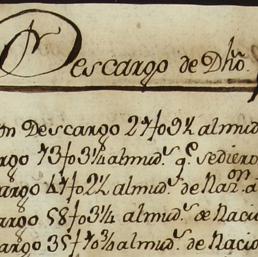 Descargo de Dho.
on Descargo 27fo9½ almud
rgo 73fo3¼ almud.s q.e sediero
argo 47fo2½ almud.s de Raz.n a
argo 58fo3¼ almud.s de Racio
argo 35fo7¾ almud.s de Racio